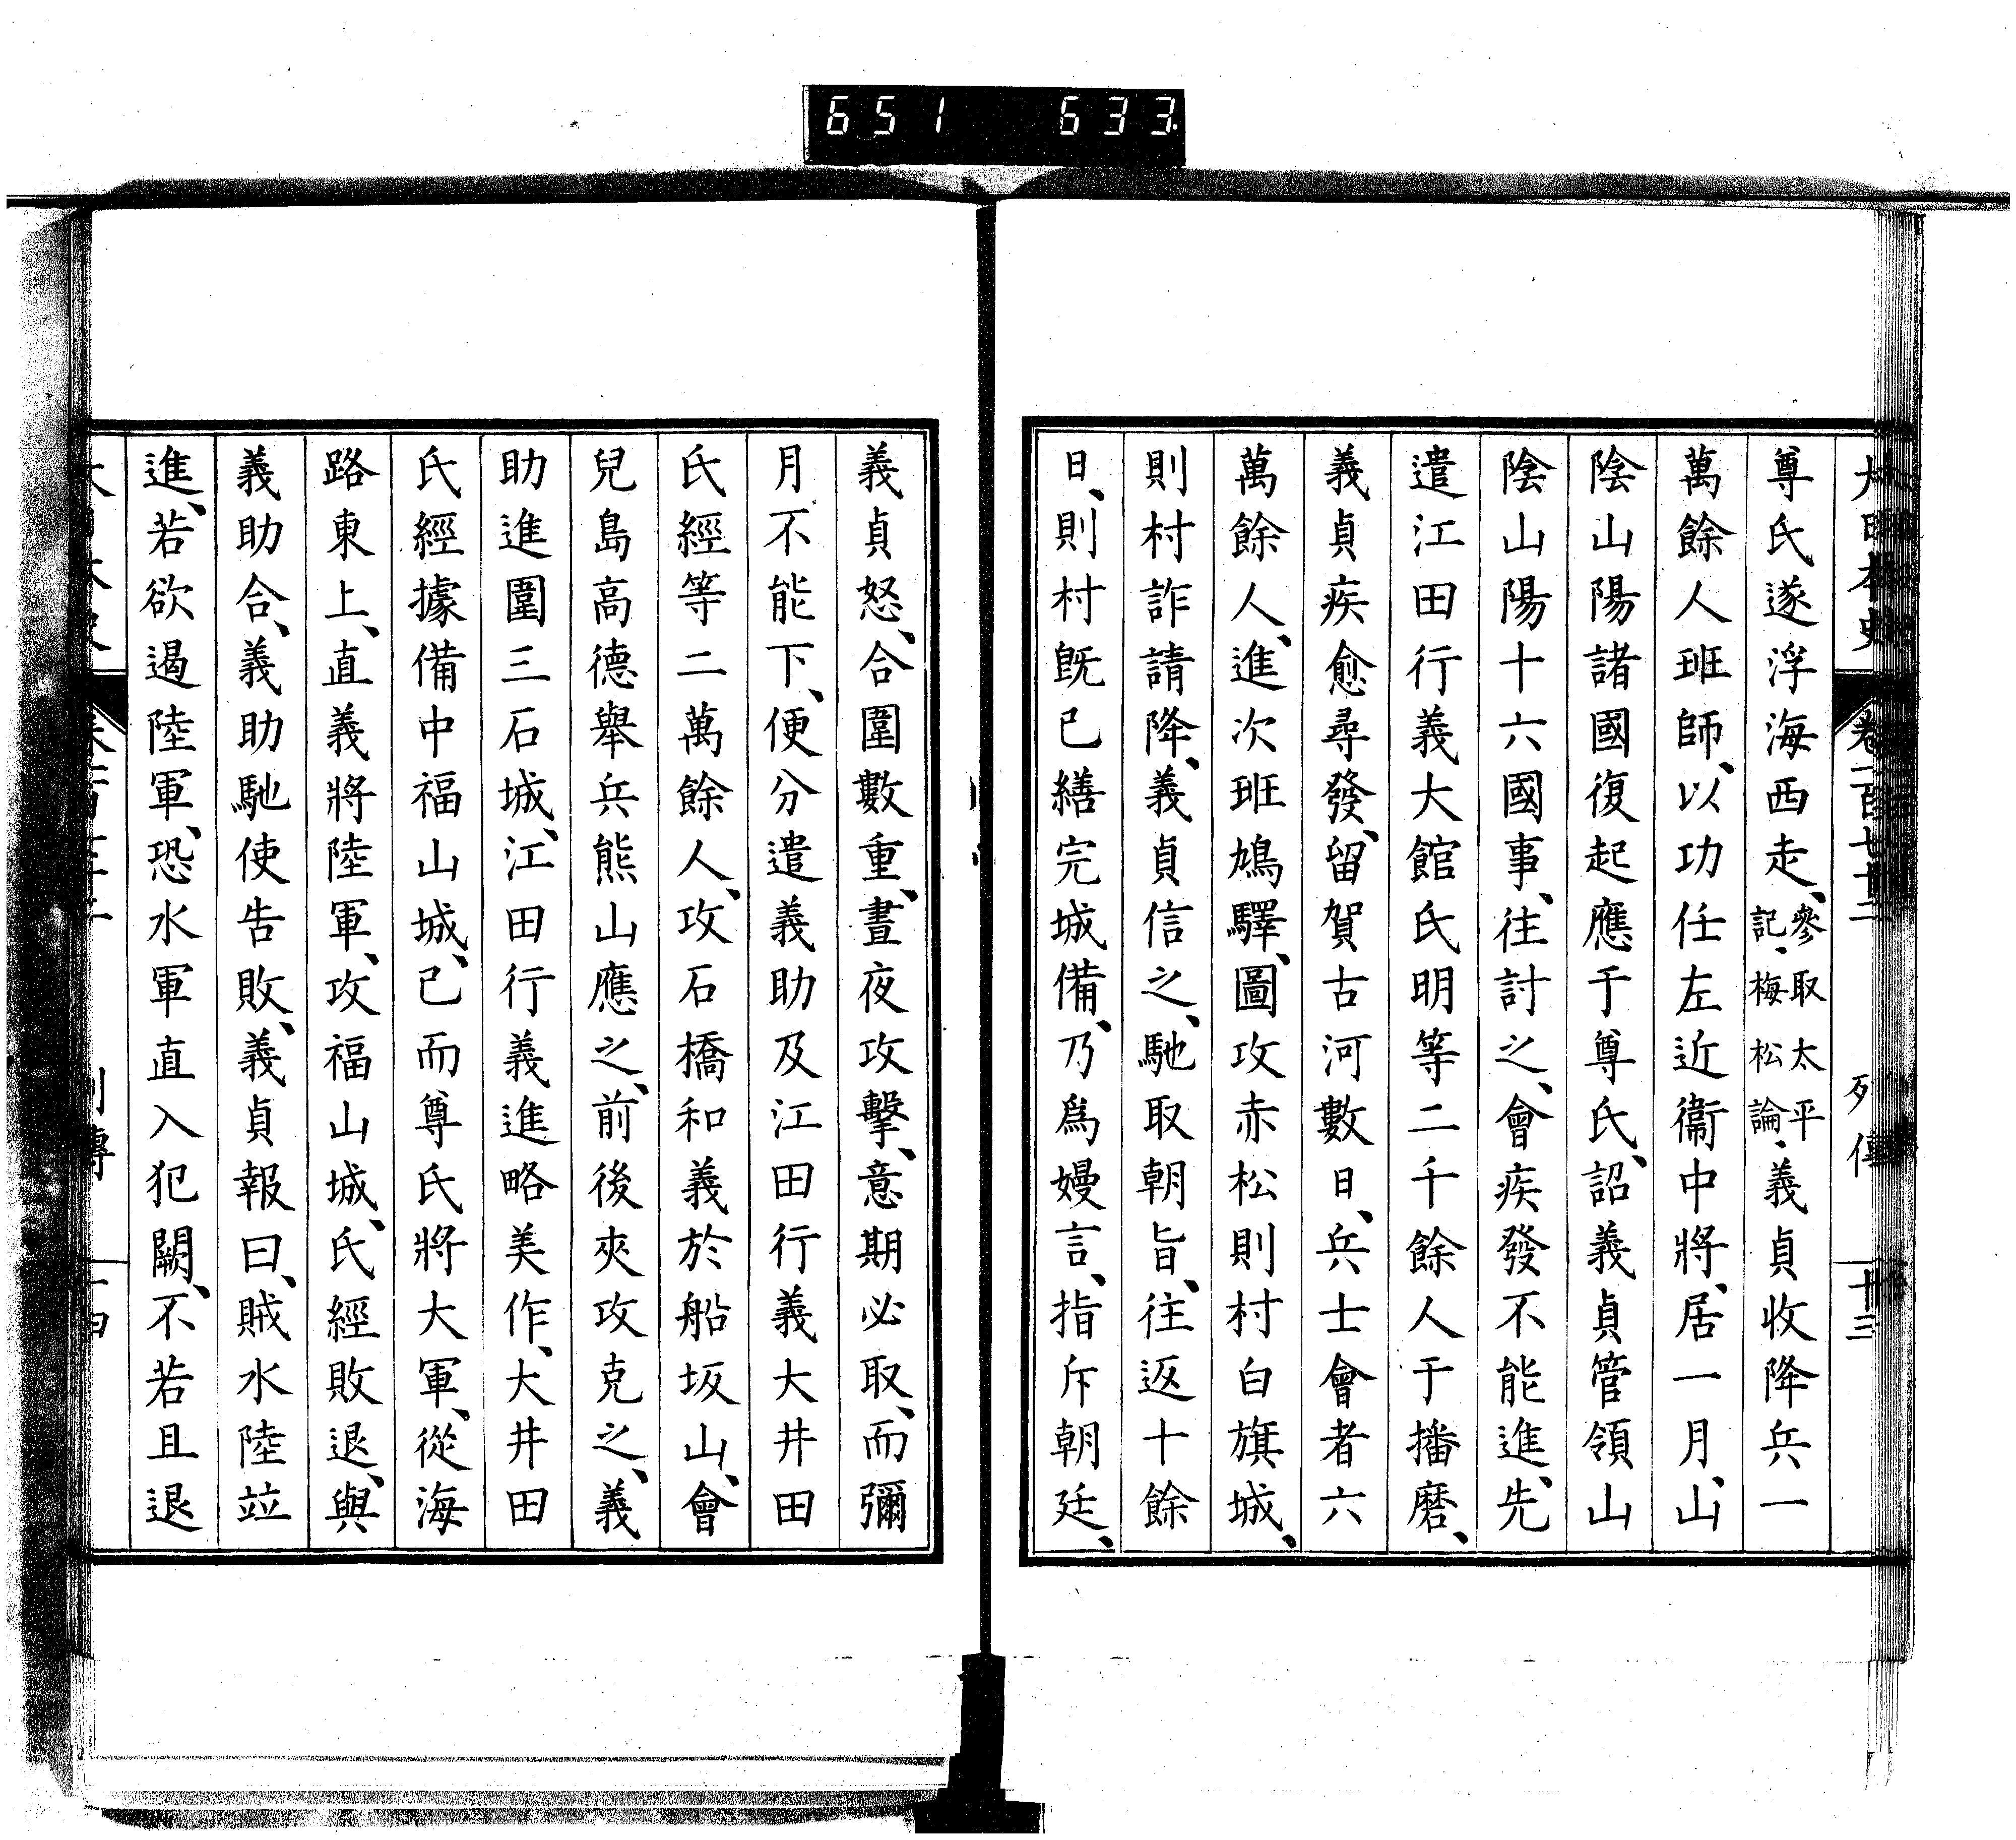 651 633
大日本史 卷一百七十二 列傳 十三
尊氏遂浮海西走、參取太平記・梅松論・義貞收降兵一
萬餘人班師、以功任左近衞中將、居一月、山
陰山陽諸國復起應于尊氏、詔義貞管領山
陰山陽十六國事、往討之、會疾發不能進、先
遣江田行義大館氏明等二千餘人于播磨、
義貞疾愈尋發、留賀古河數日、兵士會者六
萬餘人、進次班鳩驛、圖攻赤松則村白旗城、
則村詐請降、義貞信之、馳取朝旨、往返十餘
日、則村旣已繕完城備、乃爲嫚言、指斥朝廷、
義貞怒、合圍數重、晝夜攻擊、意期必取、而彌
月不能下、便分遣義助及江田行義大井田
氏經等二萬餘人、攻石橋和義於船坂山、會
兒島高德舉兵熊山應之、前後夾攻克之、義
助進圍三石城、江田行義進略美作、大井田
氏經據備中福山城、已而尊氏將大軍、從海
路東上、直義將陸軍、攻福山城、氏經敗退、與
義助合、義助馳使告敗、義貞報曰、賊水陸竝
進、若欲遏陸軍、恐水軍直入犯闕、不若且退